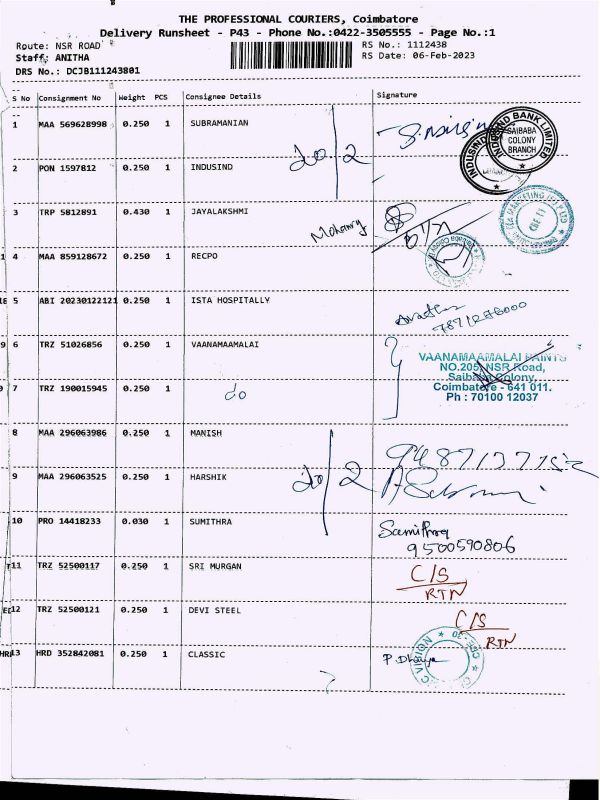 THE PROFESSIONAL COURIERS, Coimbatore
Delivery Runsheet - P43 - Phone No.:0422-3505555 - Page No.:1
Route: NSR ROAD
RS No.: 1112438
Staff: ANITHA
RS Date: 06-Feb-2023
DRS No.: DCJB111243801
S No Consignment No Weight PCS Consignee Details Signature
1 MAA 569628998 0.250 1 SUBRAMANIAN
INDUSIND BANK LIMITED
SAIBABA COLONY BRANCH
2 PON 1597812 0.250 1 INDUSIND
3 TRP 5812891 0.430 1 JAYALAKSHMI
4 MAA 859128672 0.250 1 RECPO
5 ABI 20230122121 0.250 1 ISTA HOSPITALLY
6 TRZ 51026856 0.250 1 VAANAMAAMALAI
VAANAMAAMALAI PAINTS
NO.205, NSR Road,
Saibaba Colony,
Coimbatore - 641 011.
Ph : 70100 12037
7 TRZ 190015945 0.250 1 do
8 MAA 296063986 0.250 1 MANISH
9 MAA 296063525 0.250 1 HARSHIK
10 PRO 14418233 0.030 1 SUMITHRA
9500590806
11 TRZ 52500117 0.250 1 SRI MURGAN C/S
RTN
12 TRZ 52500121 0.250 1 DEVI STEEL C/S
RTN
13 HRD 352842081 0.250 1 CLASSIC